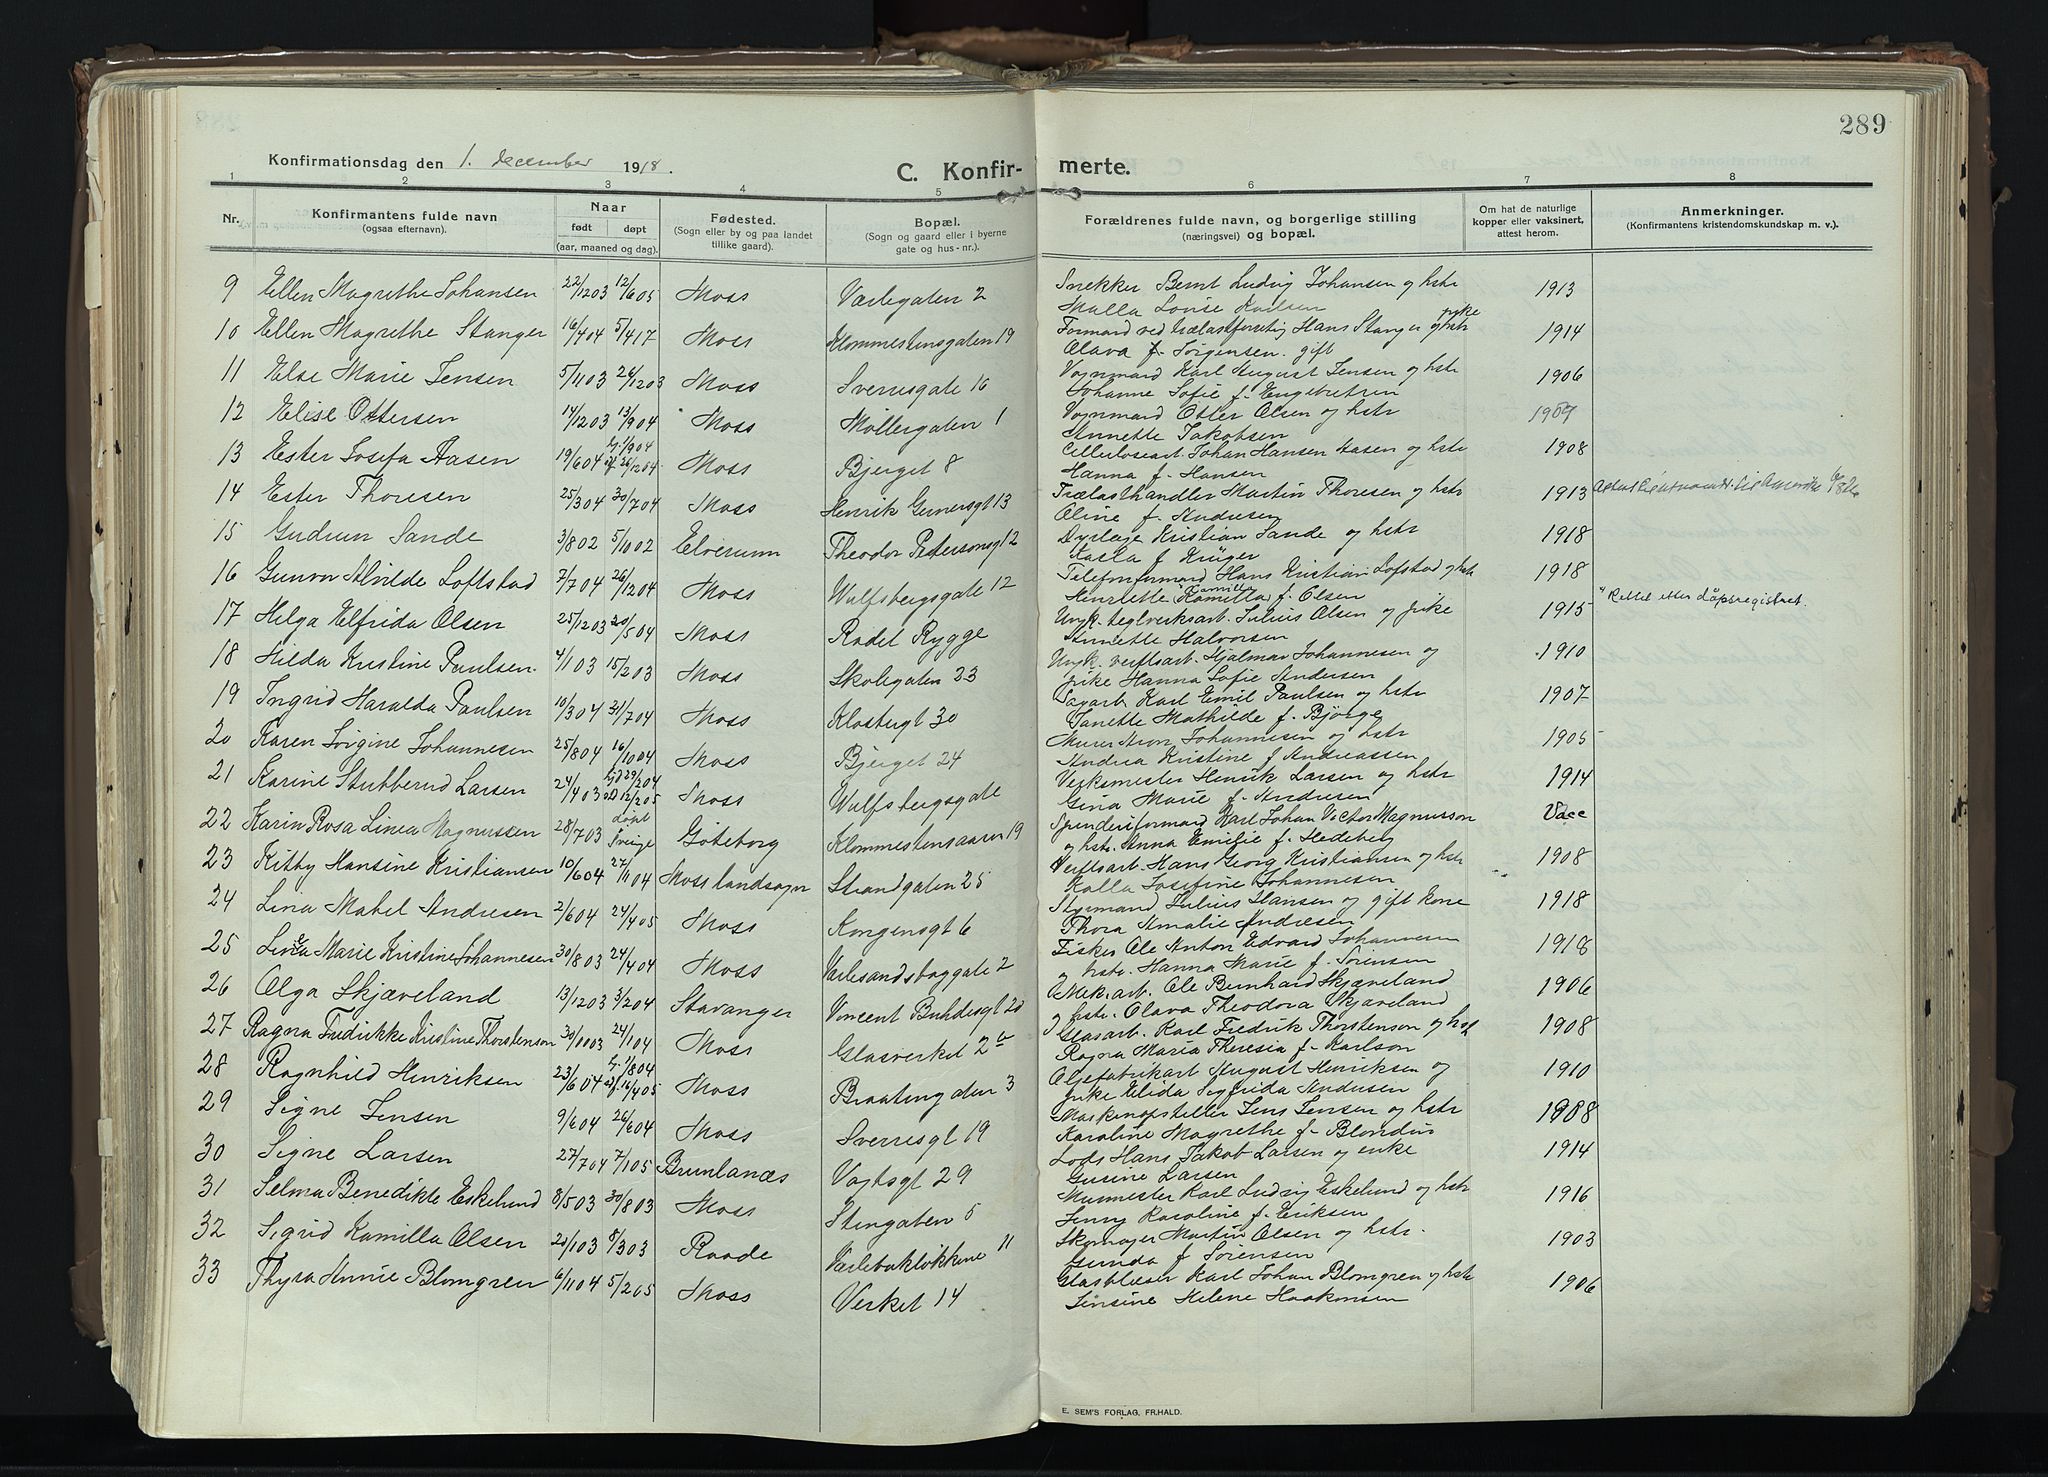 289
Konfirmationsdag den 1. december 1918.
C. Konfir- merte.
1 2 3 4 5 6 7 8
Nr.
Konfirmantens fulde navn
(ogsaa efternavn).
Naar
født døpt
(aar, maaned og dag).
Fødested.
(Sogn eller by og paa landet
tillike gaard).
Bopæl.
(Sogn og gaard eller i byerne
gate og hus-nr.).
Forældrenes fulde navn, og borgerlige stilling
(næringsvei) og bopæl.
Om hat de naturlige
kopper eller vaksinert,
attest herom.
Anmerkninger.
(Konfirmantens kristendomskundskap m. v.).
9 Ellen Magrethe Johansen 22/12 03 12/6 05 Moss Varlegaten 2 Snekker Bernt Ludvig Johansen og hstr 1913
Malla Lovise Karlsen
10 Ellen Magrethe Stanger 16/4 04 5/4 17 Moss Klommestensgaten 19 Formand ved Trælastforretng Hans Stanger og hstr 1914
Olava f. Jørgensen. gift
11 Else Marie Jensen 5/11 03 26/12 03 Moss Sverresgate 16 Vognmand Karl August Jensen og hstr 1906
Johanne Sofie f. Engebretsen
12 Elise Ottersen 14/12 03 13/9 04 Moss Møllergaten 1 Vognmand Otter Olsen og hstr 1907
Annette Jakobsen
13 Ester Josefa Aasen 19/6 04 1/9 04 26/12 04 Moss Bjerget 8 Cellulosearb. Johan Hansen Aasen og hstr 1908
Hanna f. Hansen
14 Ester Thoresen 25/3 04 30/7 04 Moss Henrik Gernersgt 13 Trælasthandler Martin Thoresen og hstr 1913
Oline f. Andresen
15 Gudrun Sande 3/8 02 5/10 02 Elverum Theodor Petersonsgt 12 Dyrlæge Kristian Sande og hstr 1918
Aasla f. Krüger
16 Gunvor Alvilde Loftstad 7/7 04 26/12 04 Moss Wulfsbergsgate 12 Telefonformand Hans Kristian Lofstad og hstr 1918
Henriette (Kamilla) f. Olsen " Rettet etter dåpsregistret.
17 Helga Elfrida Olsen 25/12 03 20/5 04 Moss Rodet Rygge Ungk. teglverksarb. Julius Olsen og pike 1915
Annette Halvorsen
18 Hilda Kristine Paulsen. 4/1 03 15/2 03 Moss Skolegaten 23 Ungk. verftsarb. Hjalmar Johannesen og 1910
pike Hanna Sofie Andersen
19 Ingrid Haralda Paulsen 10/3 04 31/7 04 Moss Klostergt 30 Sagarb. Karl Emil Paulsen og hstr 1907
Janette Mathilde f. Bjørge
20 Karen Jørgine Johannesen 25/8 04 16/10 04 Moss Bjerget 24 Murer Aron Johannesen og hstr 1905
Andrea Kristine f. Andreassen
21 Karine Stubberud Larsen 24/4 03 29/2 04 12/2 05 Moss Wulfsbergsgate Verksmester Henrik Larsen og hstr 1914
Gina Marie f. Andresen
22 Karin Rosa Linea Magnussen 28/7 03 døpt Sverige Göteborg Klommestensaaen 19 Spinderiformand Karl Johan Victor Magnusson Vacc
og hstr. Anna Emilie f. Hedeberg
23 Kitty Hansine Kristiansen 10/6 04 27/11 04 Moss landsogn Strandgaten 25 Verftsarb. Hans Georg Kristiansen og hstr 1908
Kalla Josefine Johannesen
24 Lina Mabel Andresen 2/6 04 24/4 05 Moss Kongensgt 6 Styrmand Julius Hansen og gift kone 1918
Thora Amalie Andresen
25 Linea Marie Kristine Johannesen 30/8 03 24/4 04 Moss Varlesandsbyggate 2 Fisker Ole Anton Edvard Johannesen 1918
og hstr. Hanna Marie f. Sørensen
26 Olga Skjæveland 13/12 03 3/2 04 Stavanger Vincent Buhdesgt 20 Mek. arb. Ole Bernhard Skjæveland 1906
og hstr. Olava Theodora Skjæveland
27 Ragna Fredrikke Kristine Thorstenson 30/10 03 24/1 04 Moss Glasverket 2 b Glasarb. Karl Fredrik Thorstenson og hstr 1908
Ragna Maria Theresia f. Karlson
28 Ragnhild Henriksen 23/6 04 1/8 04 16/4 05 Moss Braatengaten 3 Oljefabrikarb August Henriksen og 1910
pike Elida Sigfrida Andersen
29 Signe Jensen 9/6 04 26/6 04 Moss Sverresgt 19 Maskinopstiller Jens Jensen og hstr 1908
Karoline Magrethe f. Blondin
30 Signe Larsen 27/7 04 7/1 05 Brunlanæs Vogtsgt 29 Lods Hans Jakob Larsen og enke 1914
Gusine Larsen
31 Selma Benedikte Eskelund 8/5 03 30/8 03 Moss Stengaten 5 Murmester Karl Ludvig Eskelund og hstr 1916
Jenny Karoline f. Eriksen
32 Sigrid Kamilla Olsen 20/1 03 8/3 03 Raade Varlebakløkkene 11 Skomager Martin Olsen og hstr. 1903
Gunda f. Sørensen
33 Thyra Annie Blomgren 6/11 04 5/2 05 Moss Verket 14 Glasblæser Karl Johan Blomgren og hstr 1906
Jensine Helene Haakonsen
E. SEM'S FORLAG, FR.HALD.